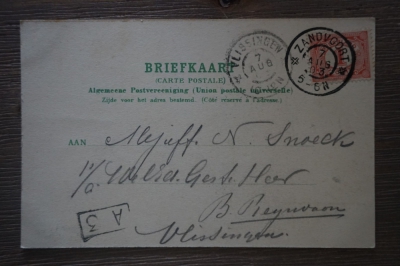 BRIEFKAART
(CARTE POSTALE)
Algemeene Postvereeniging (Union postale universelle)
Zijde voor het adres bestemd. (Côté réservé à l'adresse.)
VLISSINGEN
7 AUG
ZANDVOORT
7 AUG 03
5-6N
AAN Mejuff. N. Snoeck
p/a Weled. Gestr. Heer
B. Reynvaan
Vlissingen.
A 3